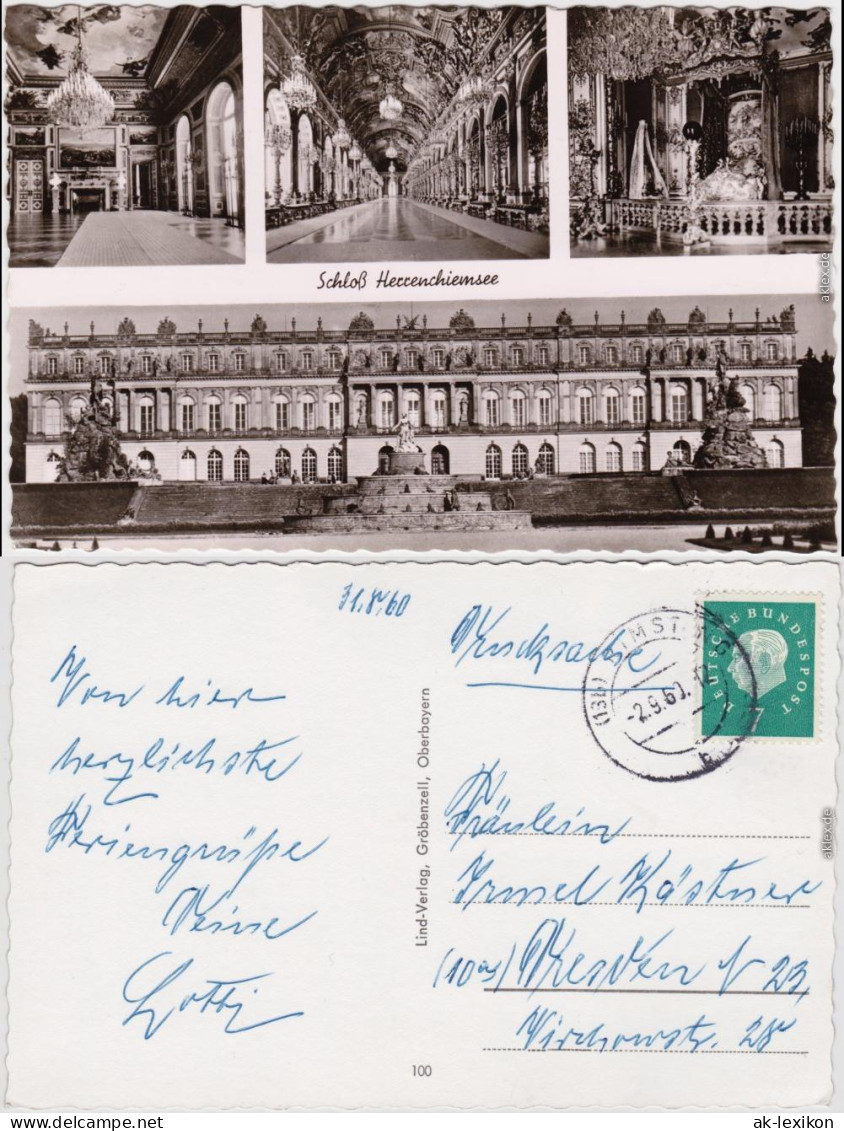 Schloß Herrenchiemsee
aklex.de
31.8.60
Drucksache
(13b)
-2.9.60.12
DEUTSCHE BUNDESPOST
7
Von hier
herzlichste
Feriengrüße
Deine
Lotti
Lind-Verlag, Gröbenzell, Oberbayern
100
Fräulein
Irmsel Kästner
(10a) Dresden N 23,
Virchowstr. 28
aklex.de
www.ansichtskarten-lexikon.de
ak-lexikon